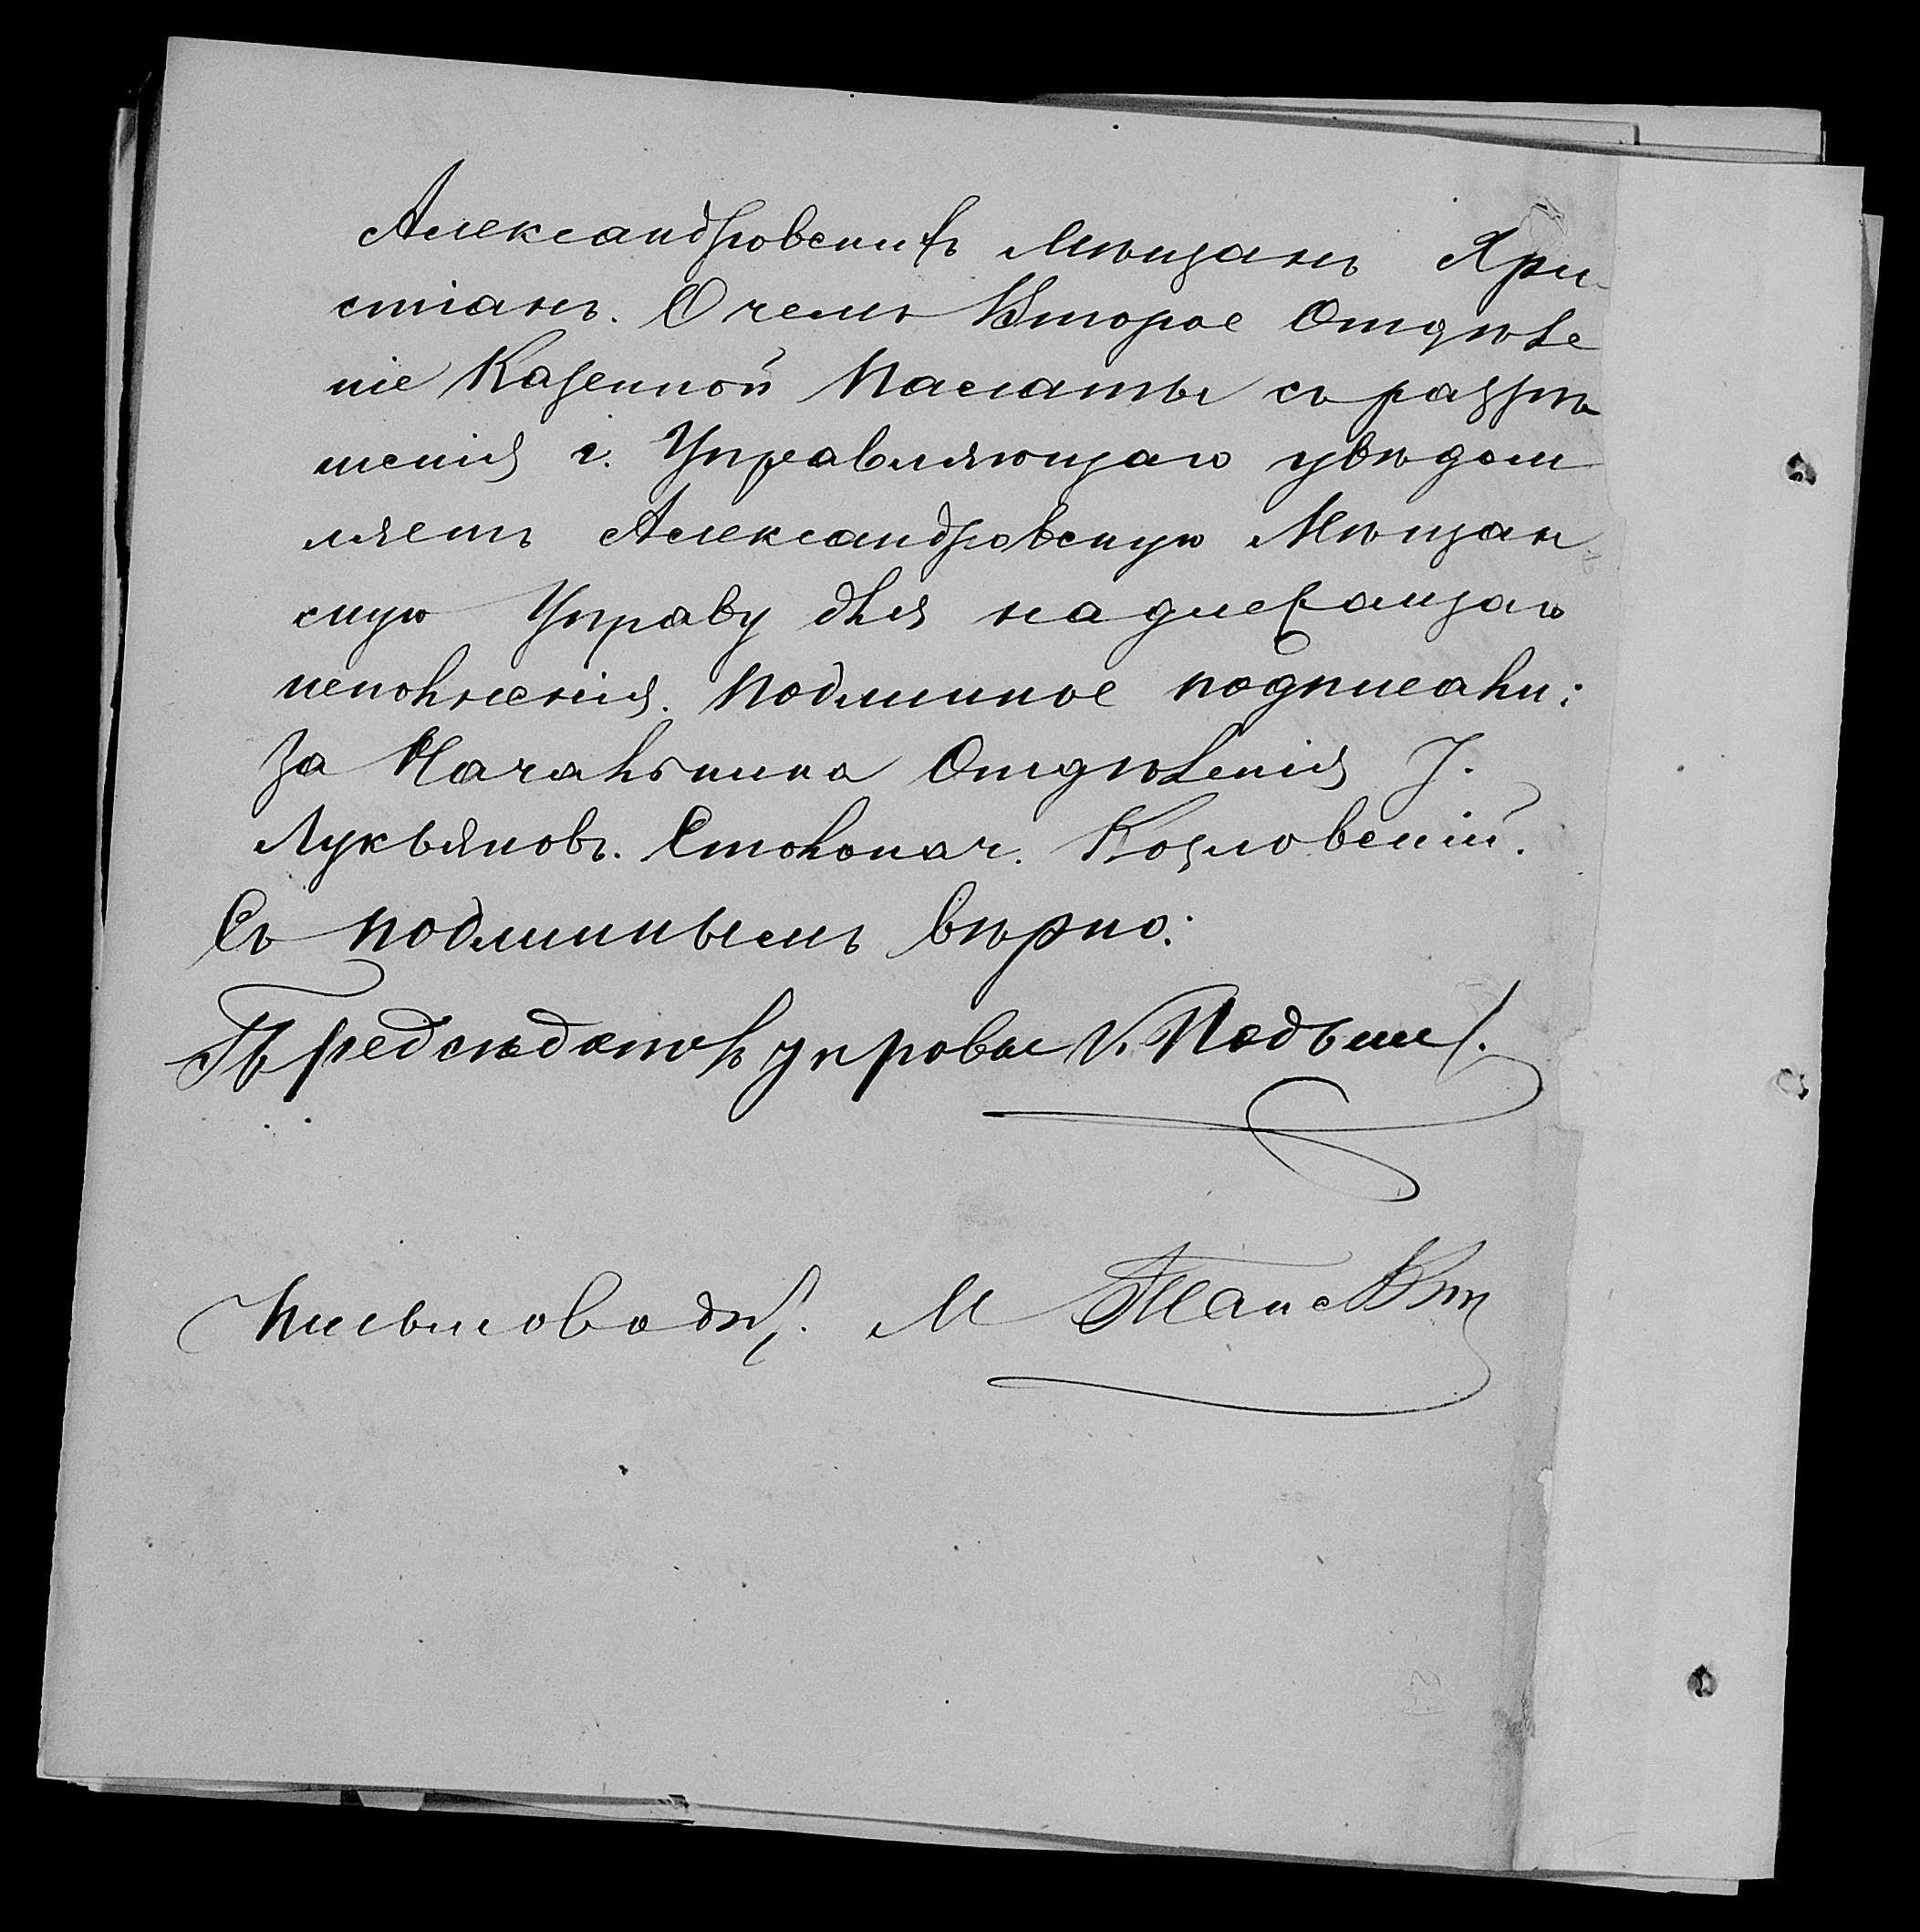 Александровскихъ Мѣщанъ Хри-
стіанъ. О чемъ Второе Отдѣле
ніе Казенной Палаты съ разрѣ-
шенія г. Управляющаго увѣдом
ляетъ Александровскую Мѣщан-
скую Управу для надлежащаго
исполненія. Подлинное подписали:
За Начальника Отдѣленія І.
Лукьяновъ. Столонач. Козловскій.
Съ подлиннымъ вѣрно:
Предсѣдатель управы
Письмоводит. М